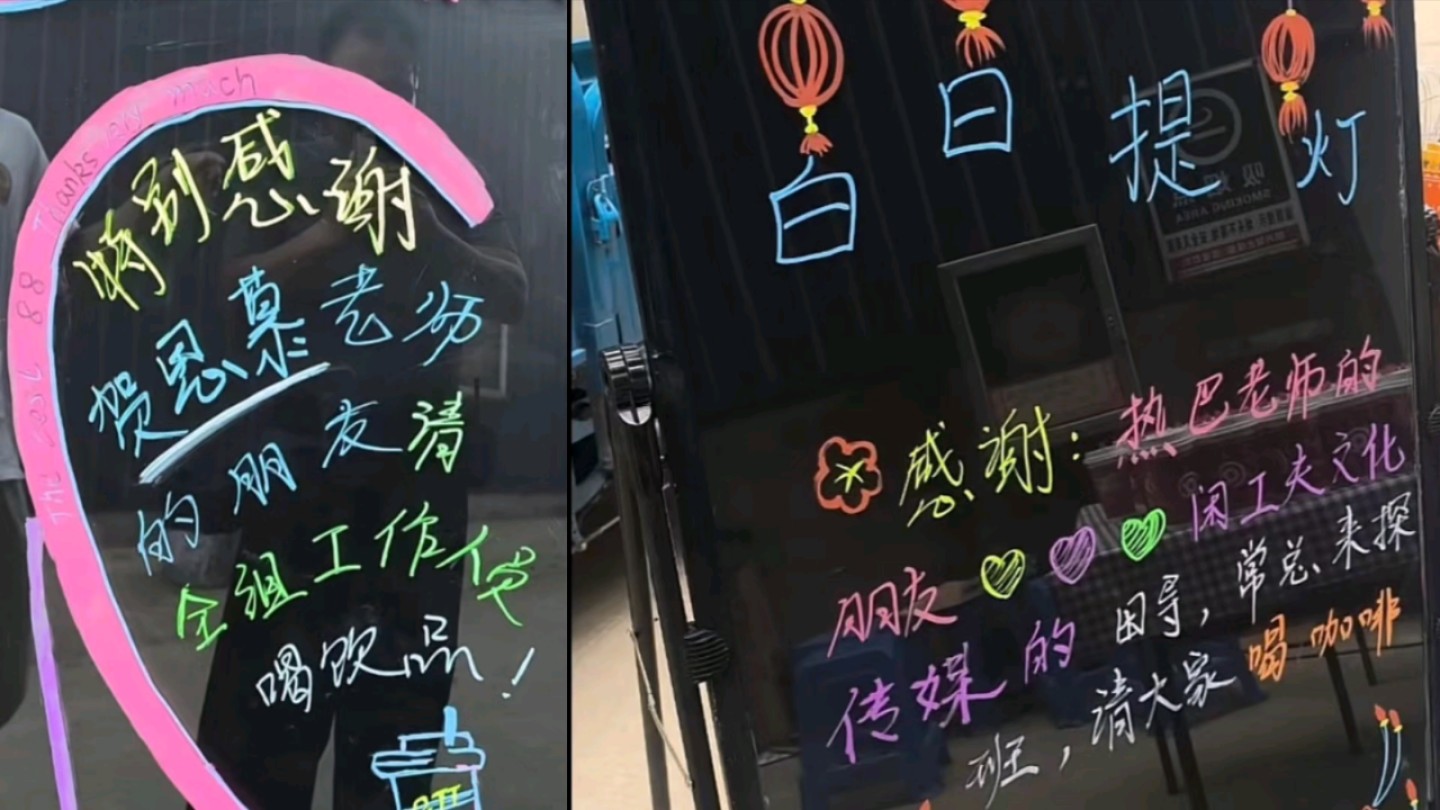 Thanks very much
特别感谢
贺恩慕老师
的朋友请
全组工作人员
喝饮品！
白日提灯
感谢：热巴老师的
朋友 闲工夫文化
传媒的田导，常总来探
班，请大家喝咖啡
SMOKING AREA